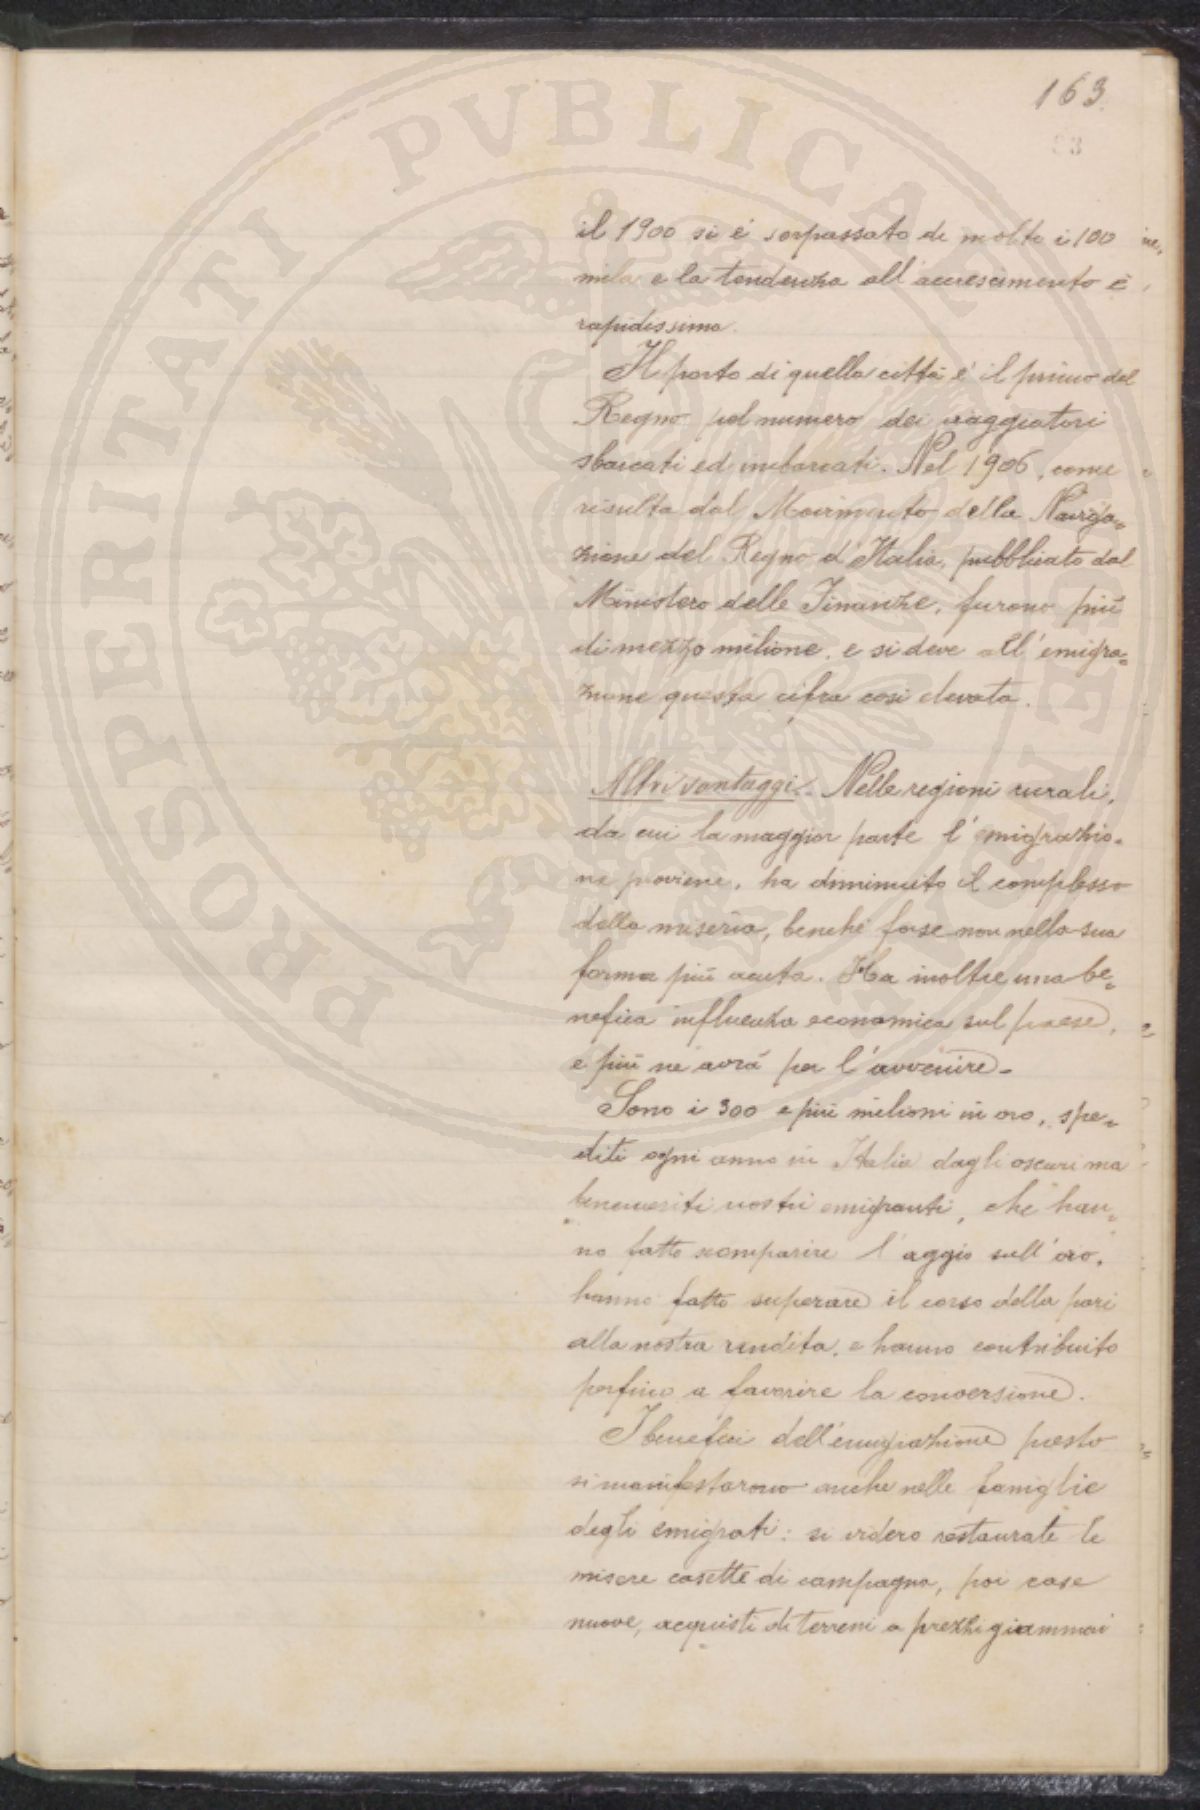 163
83
il 1900 si è sorpassato di molto i 100
mila e la tendenza all'accrescimento è
rapidissima.
Il porto di quella città è il primo del
Regno pel numero dei viaggiatori
sbarcati ed imbarcati. Nel 1906, come
risulta dal Movimento della Naviga=
zione del Regno d'Italia, pubblicato dal
Ministero delle Finanze, furono più
di mezzo milione, e si deve all'emigra=
zione questa cifra così elevata.
Altri vantaggi. Nelle regioni rurali,
da cui la maggior parte l'emigrazio=
ne proviene, ha diminuito il complesso
della miseria, benché forse non nella sua
forma più acuta. Ha inoltre una be=
nefica influenza economica sul paese,
e più ne avrà per l'avvenire.
Sono i 300 e più milioni in oro, spe=
diti ogni anno in Italia dagli oscuri ma
benemeriti nostri emigranti, che han=
no fatto scomparire l'aggio sull'oro,
hanno fatto superare il corso della pari
alla nostra rendita, e hanno contribuito
perfino a favorire la conversione.
I benefici dell'emigrazione presto
si manifestarono anche nelle famiglie
degli emigrati: si videro restaurate le
misere casette di campagna, poi case
nuove, acquisti di terreni a prezzi giammai
PROSPERITATI PVBLICAE